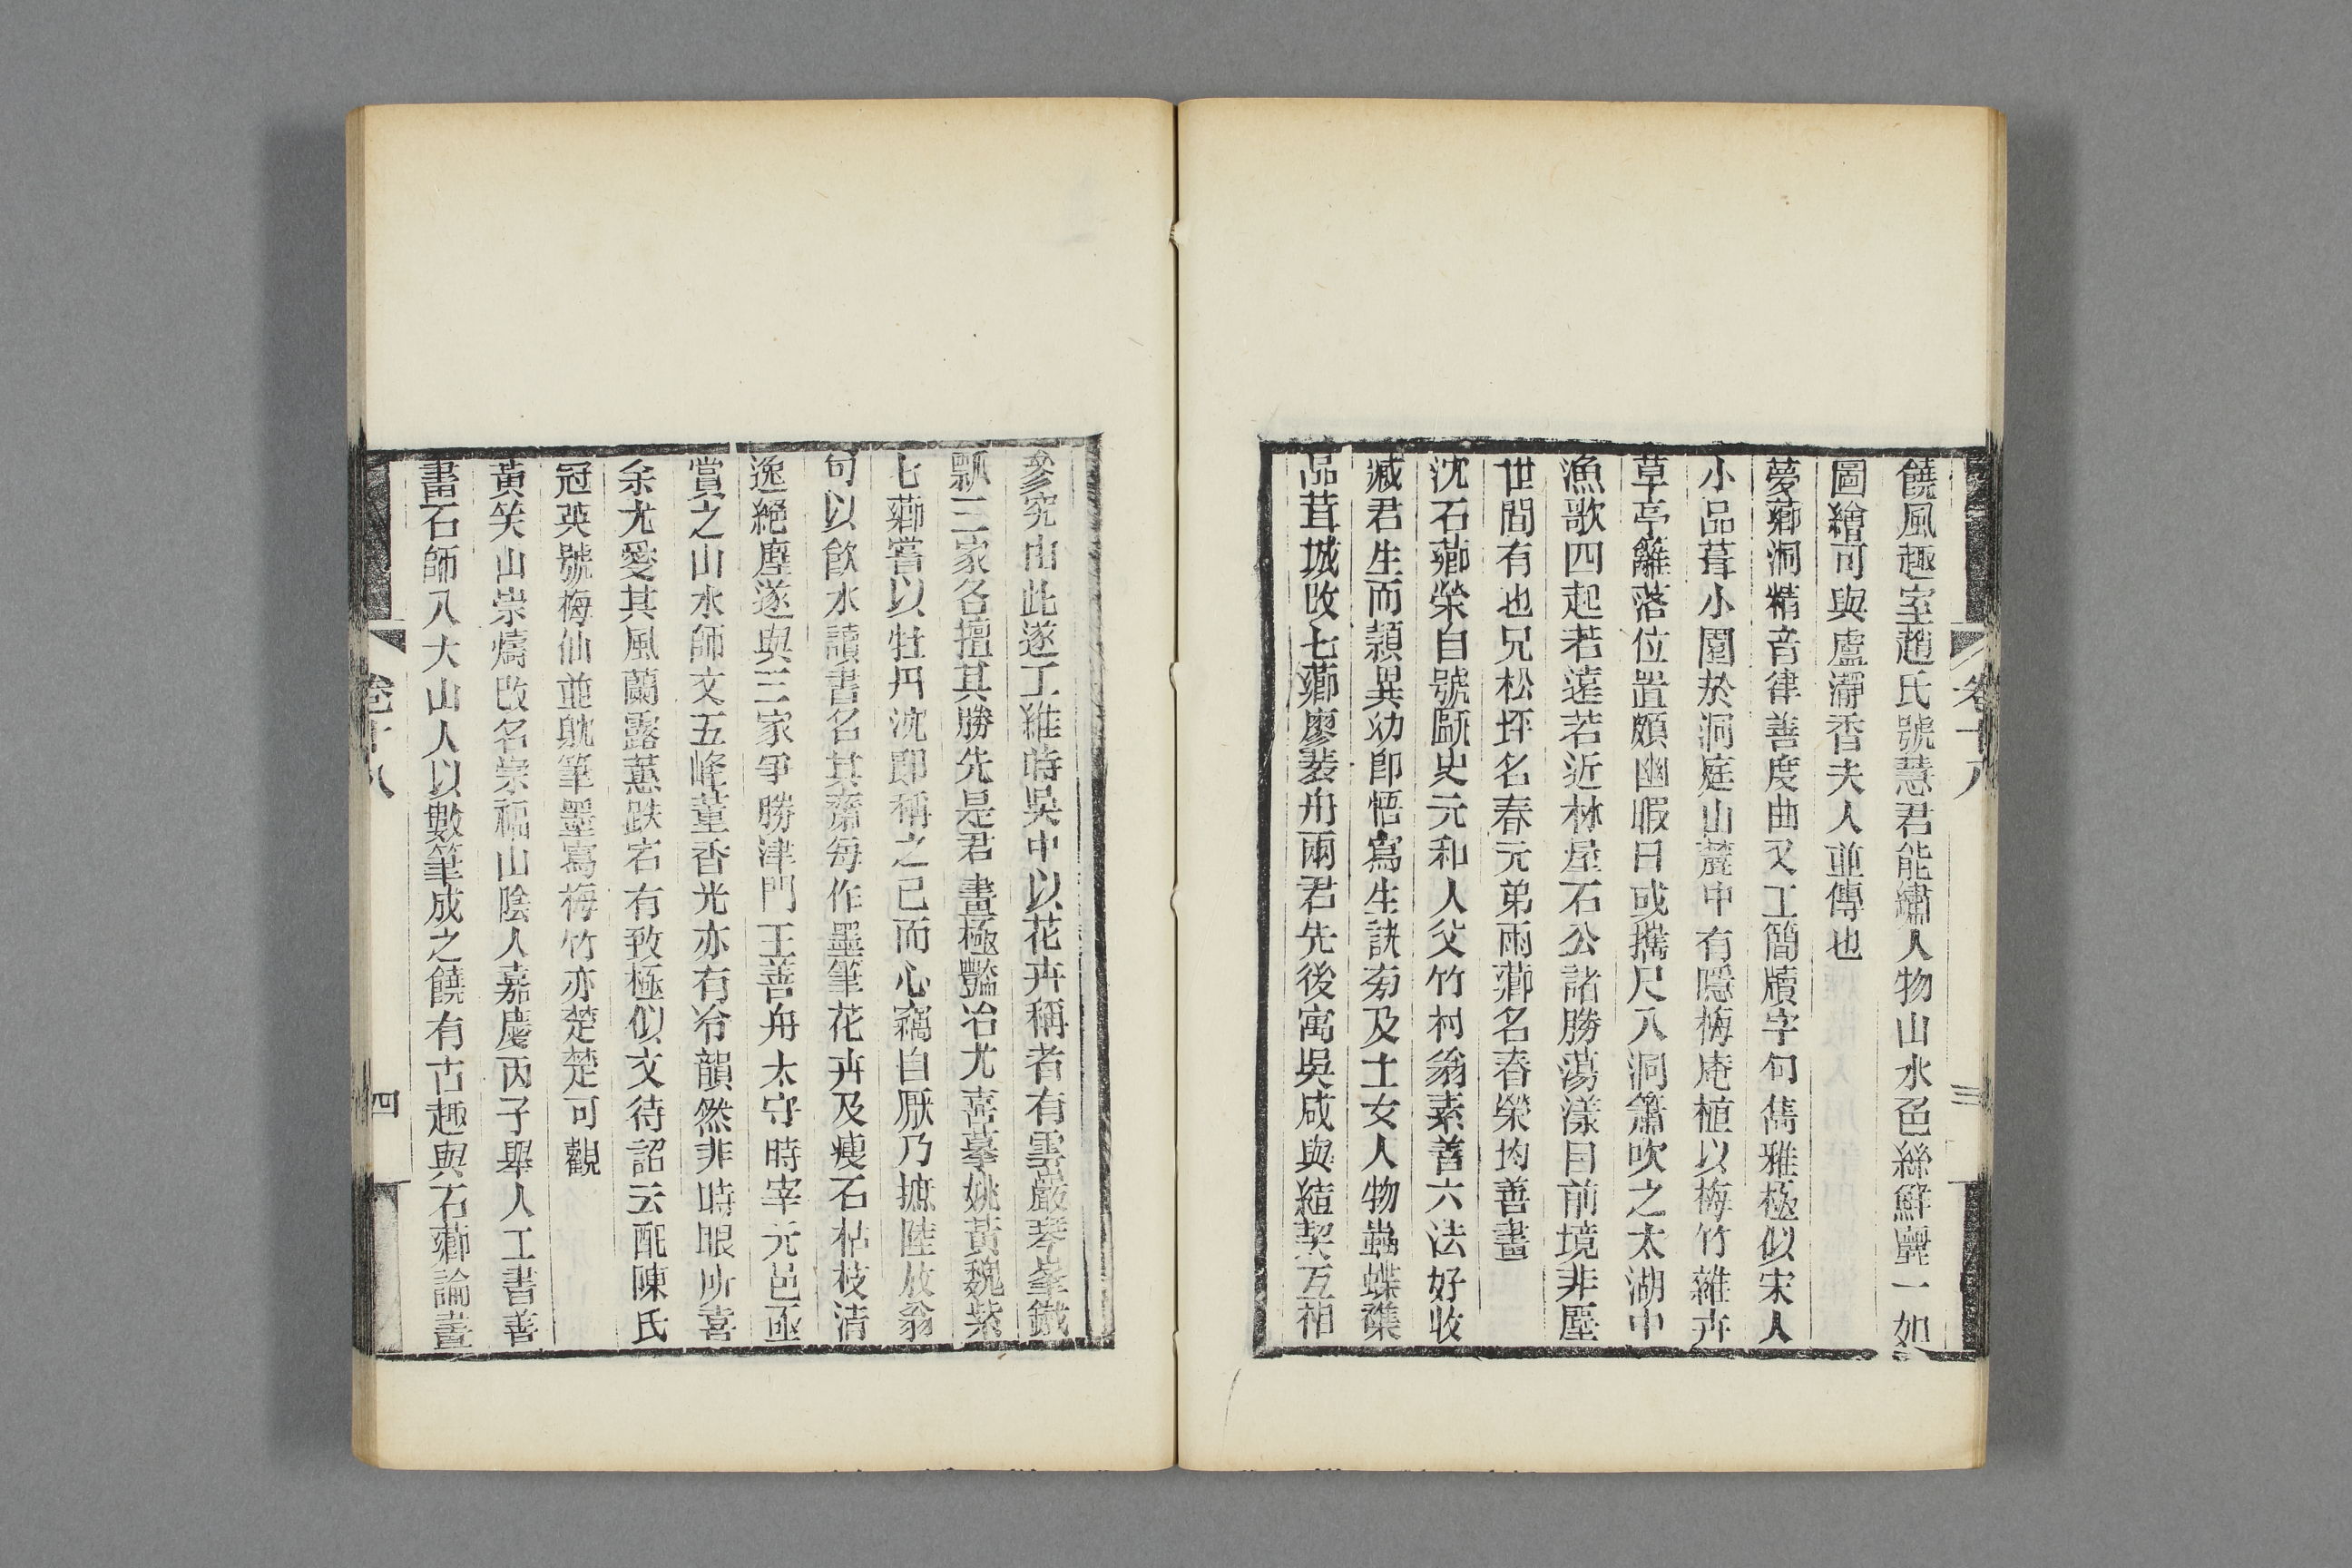 饒風趣室趙氏號慧君能繡人物山水色絲鮮麗一如
圖繪可與盧瀞香夫人並傳也
夢薌洞精音律善度曲又工簡牘字句雋雅極似宋人
小品葺小園於洞庭山麓中有隱梅庵植以梅竹雜卉
草亭籬落位置頗幽暇日或攜尺八洞簫吹之太湖中
漁歌四起若遠若近林屋石公諸勝蕩漾目前境非塵
世間有也兄松坪名春元弟雨薌名春榮均善畫
沈石薌榮自號甌史元和人父竹村翁素善六法好收
臧君生而穎異幼即悟寫生訣旁及士女人物蟲蝶襍
品茸城改七薌廖裴舟兩君先後寓吳咸與結契互相
卷十八
三
參究由此遂工維時吳中以花卉稱者有雲巖琴峯鐵
瓢三家各擅其勝先是君畫極豔冶尤喜摹姚黃魏紫
七薌嘗以牡丹沈即稱之已而心竊自厭乃摭陸放翁
句以飲水讀書名其齋每作墨筆花卉及瘦石枯枝清
逸絕塵遂與三家爭勝津門王善舟太守時宰元邑亟
賞之山水師文五峰董香光亦有冷韻然非時眼所喜
余尤愛其風蘭露蕙跌宕有致極似文待詔云配陳氏
冠英號梅仙並耽筆墨寫梅竹亦楚楚可觀
黃笑山崇燾改名崇福山陰人嘉慶丙子舉人工書善
畫石師八大山人以數筆成之饒有古趣與石薌論畫
卷十八
四